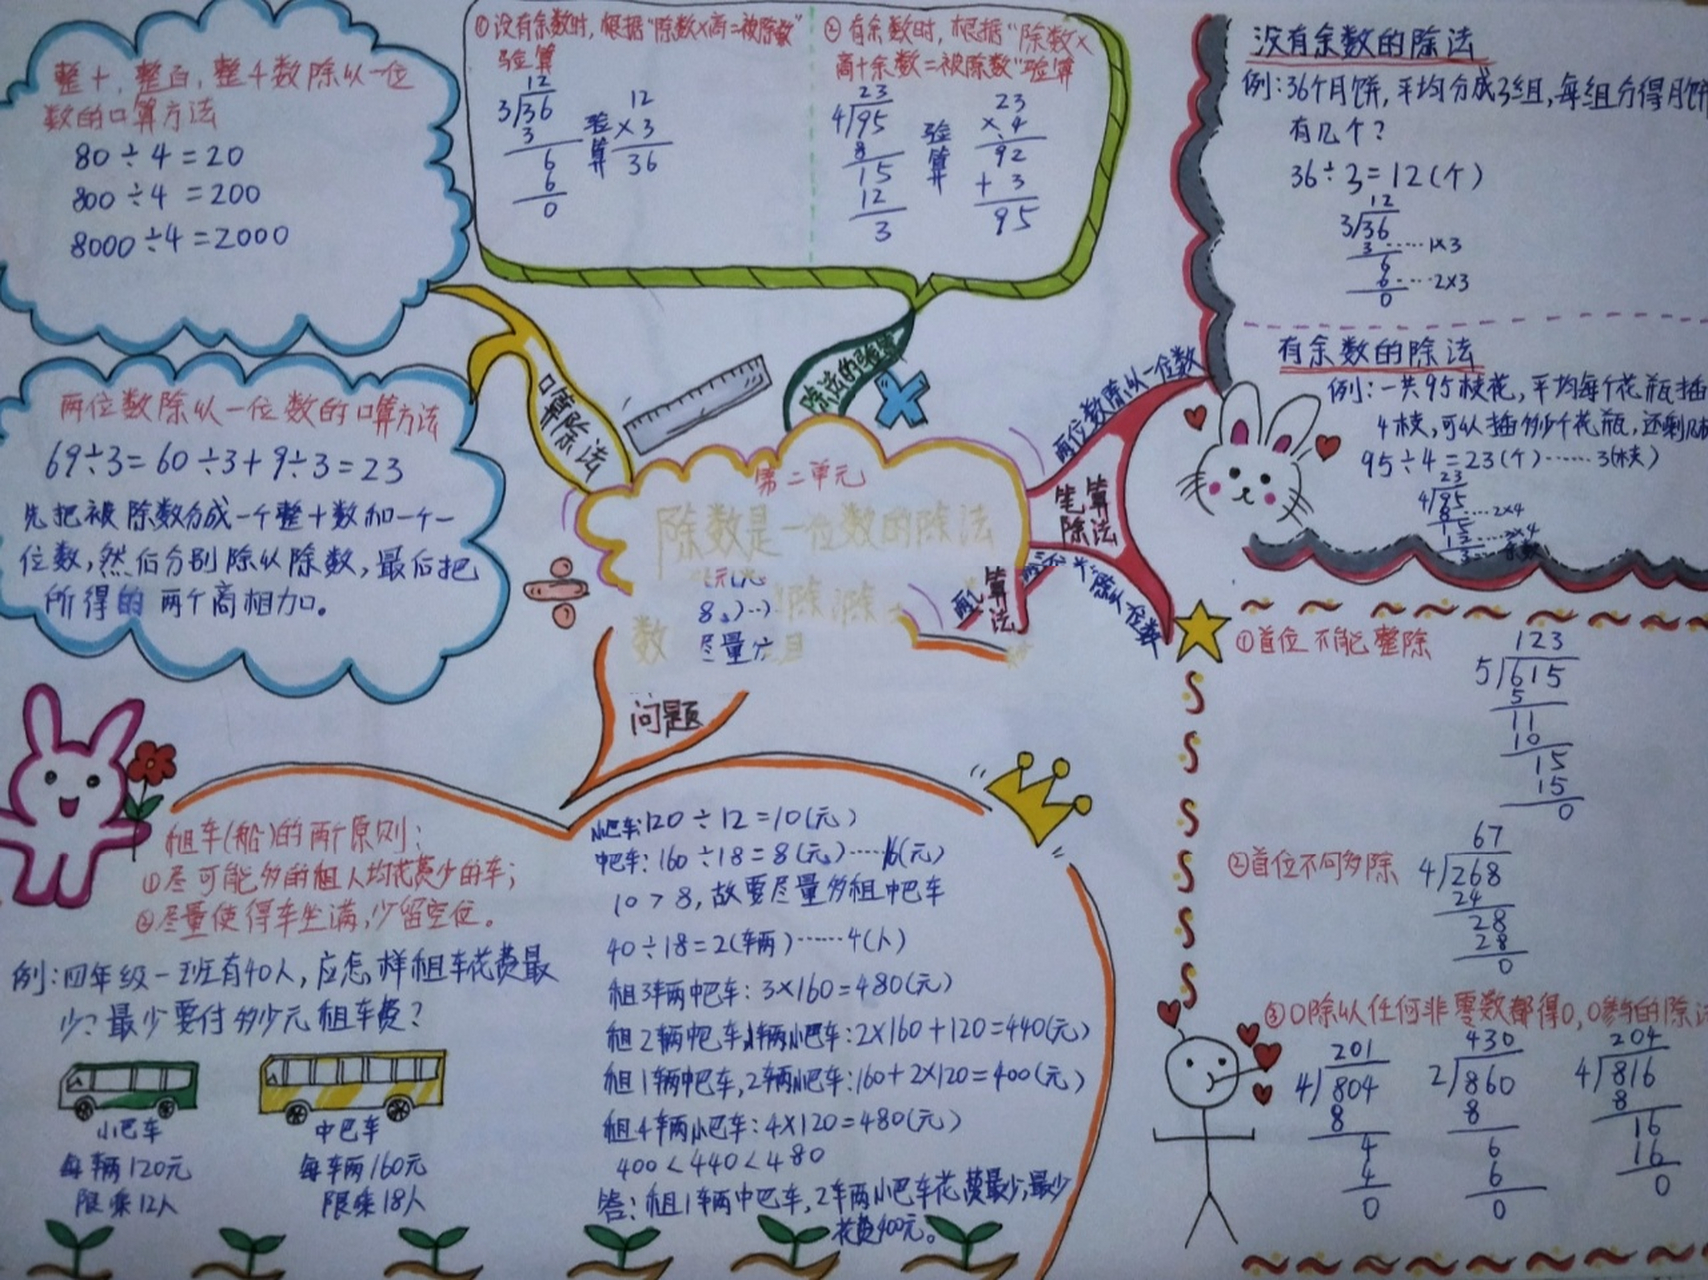 整十,整百,整千数除以一位
数的口算方法
80÷4=20
800÷4=200
8000÷4=2000
两位数除以一位数的口算方法
69÷3=60÷3+9÷3=23
先把被除数分成一个整十数和一个一
位数,然后分别除以除数,最后把
所得的两个商相加。
口算除法
①没有余数时,根据“除数×商=被除数”
验算
12
3)36
3
6
6
0
验算
12
×3
36
②有余数时,根据“除数×
商+余数=被除数”验算
23
4)95
8
15
12
3
验算
23
×4
92
+3
95
除法的验算
第二单元
除数是一位数的除法
数
尽量
笔算
除法
两位数除以一位数
算法
没有余数的除法
例:36个月饼,平均分成3组,每组分得月饼
有几个?
36÷3=12(个)
12
3)36
3……1×3
6
6……2×3
0
有余数的除法
例:一共95枝花,平均每个花瓶插
4枝,可以插多少个花瓶,还剩几枝
95÷4=23(个)……3(枝)
23
4)95
8……2×4
15
12
3
①首位不能整除
123
5)615
5
11
10
15
15
0
②首位不够除
67
4)268
24
28
28
0
③0除以任何非零数都得0,0参与的除法
201
4)804
8
4
4
0
430
2)860
8
6
6
0
204
4)816
8
16
16
0
问题
租车(船)的两个原则:
①尽可能多的租人均花费少的车;
②尽量使得车坐满,少留空位。
例:四年级一班有40人,应怎样租车花费最
少?最少要付多少元租车费?
小巴车
每辆120元
限乘12人
中巴车
每车两160元
限乘18人
小巴车:120÷12=10(元)
中巴车:160÷18=8(元)……16(元)
10>8,故要尽量多租中巴车
40÷18=2(车辆)……4(人)
租3车两中巴车:3×160=480(元)
租2辆中巴车,1辆小巴车:2×160+120=440(元)
租1辆中巴车,2车两小巴车:160+2×120=400(元)
租4车两小巴车:4×120=480(元)
400<440<480
答:租1车两中巴车,2车两小巴车花费最少,最少
花费400元。